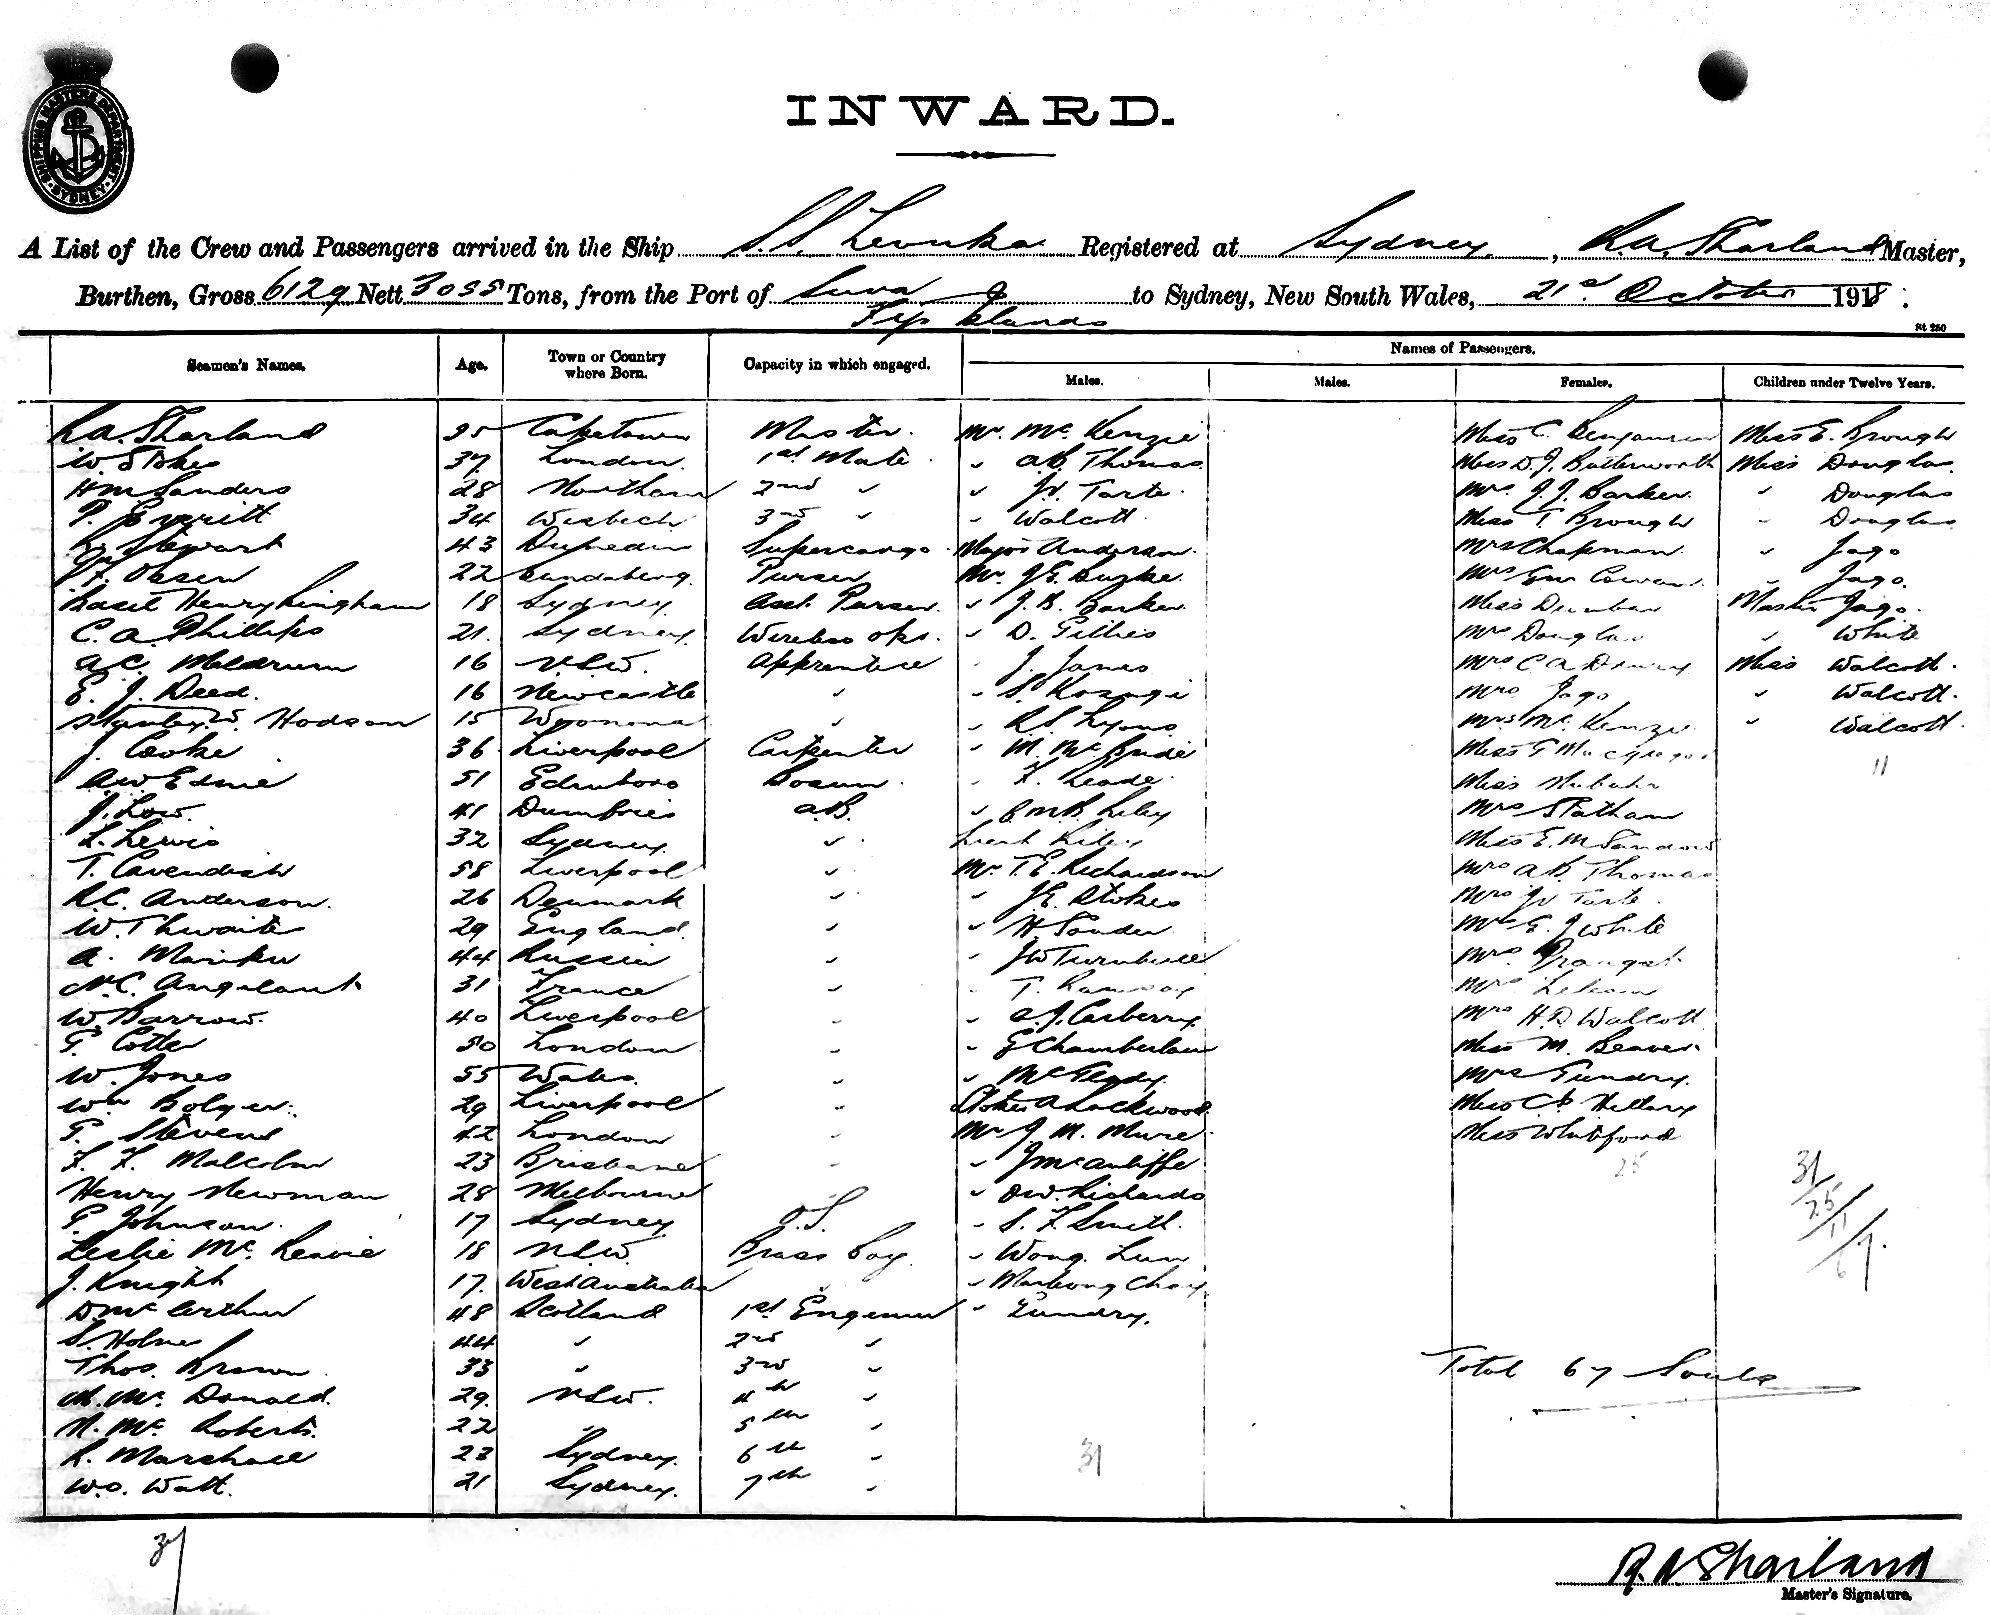 SHIPPING MASTERS DEPARTMENT SYDNEY
INWARD.
A List of the Crew and Passengers arrived in the Ship S.S. Levuka Registered at Sydney, R.A. Sharland Master,
Burthen, Gross 6129 Nett Tons, from the Port of Suva to Sydney, New South Wales, 21st October 1918.
Fiji Islands
St 250
Seamen's Names. Age. Town or Country where Born. Capacity in which engaged. Names of Passengers.
Males. Males. Females. Children under Twelve Years.
R.A. Sharland 35 Capetown Master. Mr. Mc. Kenzie Miss C. Benjamin Miss E. Brough
W. Stokes 37 London. 1st Mate " A.B. Thomas Miss D.J. Butterworth Miss Douglas.
HM Sanders 28 Northam 2nd " " Jn. Tarte. Mrs J.J. Barker. " Douglas
P. Everitt 34 Wisbech 3rd " " Walcott. Miss T. Brough " Douglas
Stewart 43 Dunedin Supercargo Major Anderson. Mrs Chapman. " Jago
Olsen 22 Bundaberg. Purser Mr. J.E. Burke. Mrs Cowan " Jago.
Basil Henry Bingham 18 Sydney. Asst. Purser. " J.H. Barker. Miss Dunbar Master Jago.
C.A. Phillips 21. Sydney. Wireless ops. " D. Gillies Mrs Douglas " White
A.C. Meldrum 16 N.S.W. Apprentice J. James Mrs C A Miss Walcott.
E. J. Deed. 16 Newcastle " " S. Mrs Jago " Walcott.
Stanley W. Hodson 15 Woonona " " R.S. Lyons Mrs Mc. Kenzie " Walcott.
J. Cooke 36 Liverpool Carpenter " M. McBride Miss G MacGregor 11
A.W. Edmie 51 Edinboro Bosun. F. Leade. Miss
J. Low. 41 Dumfries A.B. " Riley Mrs Statham
L. Lewis 32 Sydney. " Lieut Riley Miss E.M.
T. Cavendish 58 Liverpool " Mr. T.E. Richardson Mrs A.B. Thomas
R.C. Anderson. 26 Denmark " " J.E. Stokes Mrs Jn Tarte.
W. Thwaite 29 England. " " H Sander. Mrs E. J White
A. 44 Russia " " JW Turnbull Mrs
31 France " T. Ramsay Mrs
W. Barrow. 40 Liverpool " " Carberry. Mrs H.D Walcott
G. Cotter 50 London " " G Chamberlain Miss M. Beaver.
W. Jones 55 Wales. " " Mrs Gundry.
Wm Bolger. 29 Liverpool " Lockwood. Miss Hillary
G. Stevens 42 London " Mr J. M. Mure. Miss Whitford
F. F. Malcolm 23 Brisbane " " J McAuliffe 25 31
Henry Newman 28 Melbourne " O.W. Richards 25
G. Johnson. 17 Sydney O.S. " S. F. Smith. 11
Leslie Mc. 18 N.S.W. Brass boy. " Wong. Lum 67.
J. Knight 17. West Australia " "
D. Mc Arthur 48 Scotland 1st Engineer " Gundry.
S. Holme 44 " 2nd "
Thos. Brown 33 " 3rd " Total 67 Souls
M. Mc. Donald. 29. N.S.W. 4th "
N. Mc. Roberts. 22 " 5th "
R. Marshall 23 Sydney. 6th " 31
W.O. Watt. 21 Sydney. 7th "
37
R.A Sharland
Master's Signature.